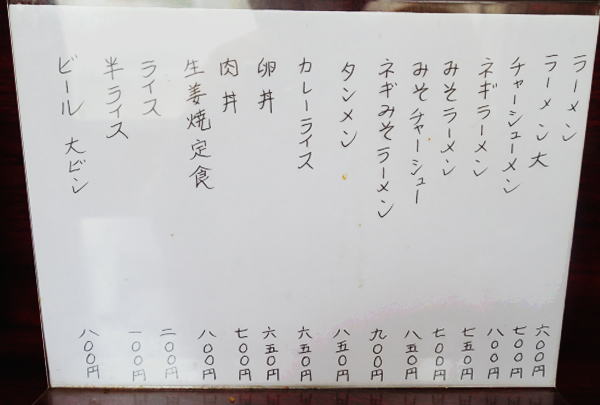 ラーメン 六〇〇円
ラーメン大 七〇〇円
チャーシューメン 八〇〇円
ネギラーメン 七五〇円
みそラーメン 七〇〇円
みそチャーシュー 八五〇円
ネギみそラーメン 九〇〇円
タンメン 八五〇円
カレーライス 六五〇円
卵丼 六五〇円
肉丼 七〇〇円
生姜焼定食 八〇〇円
ライス 二〇〇円
半ライス 一〇〇円
ビール 大ビン 八〇〇円